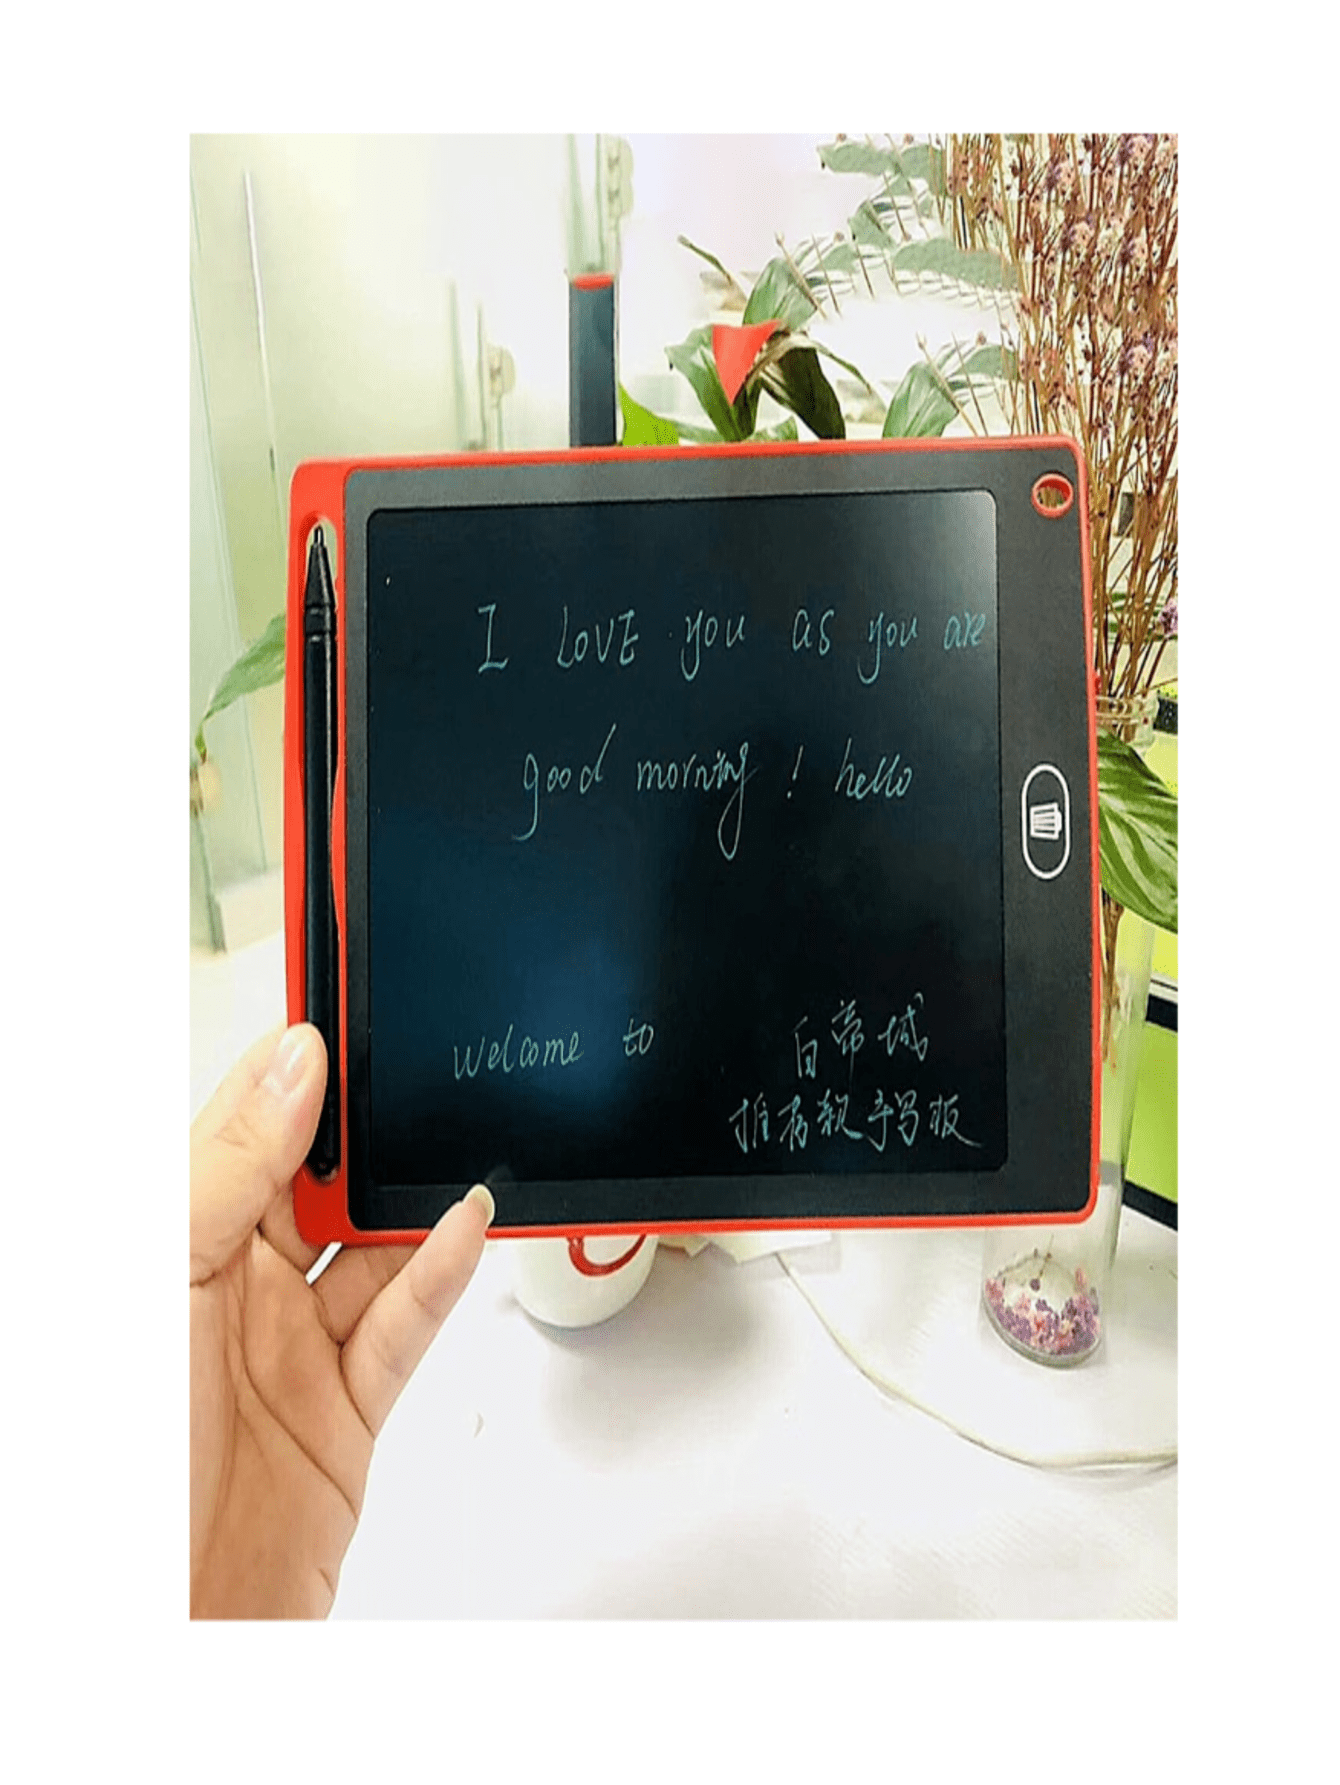 I LOVE you as you are
good morning ! hello
Welcome to 白帝城
推荐款手写板